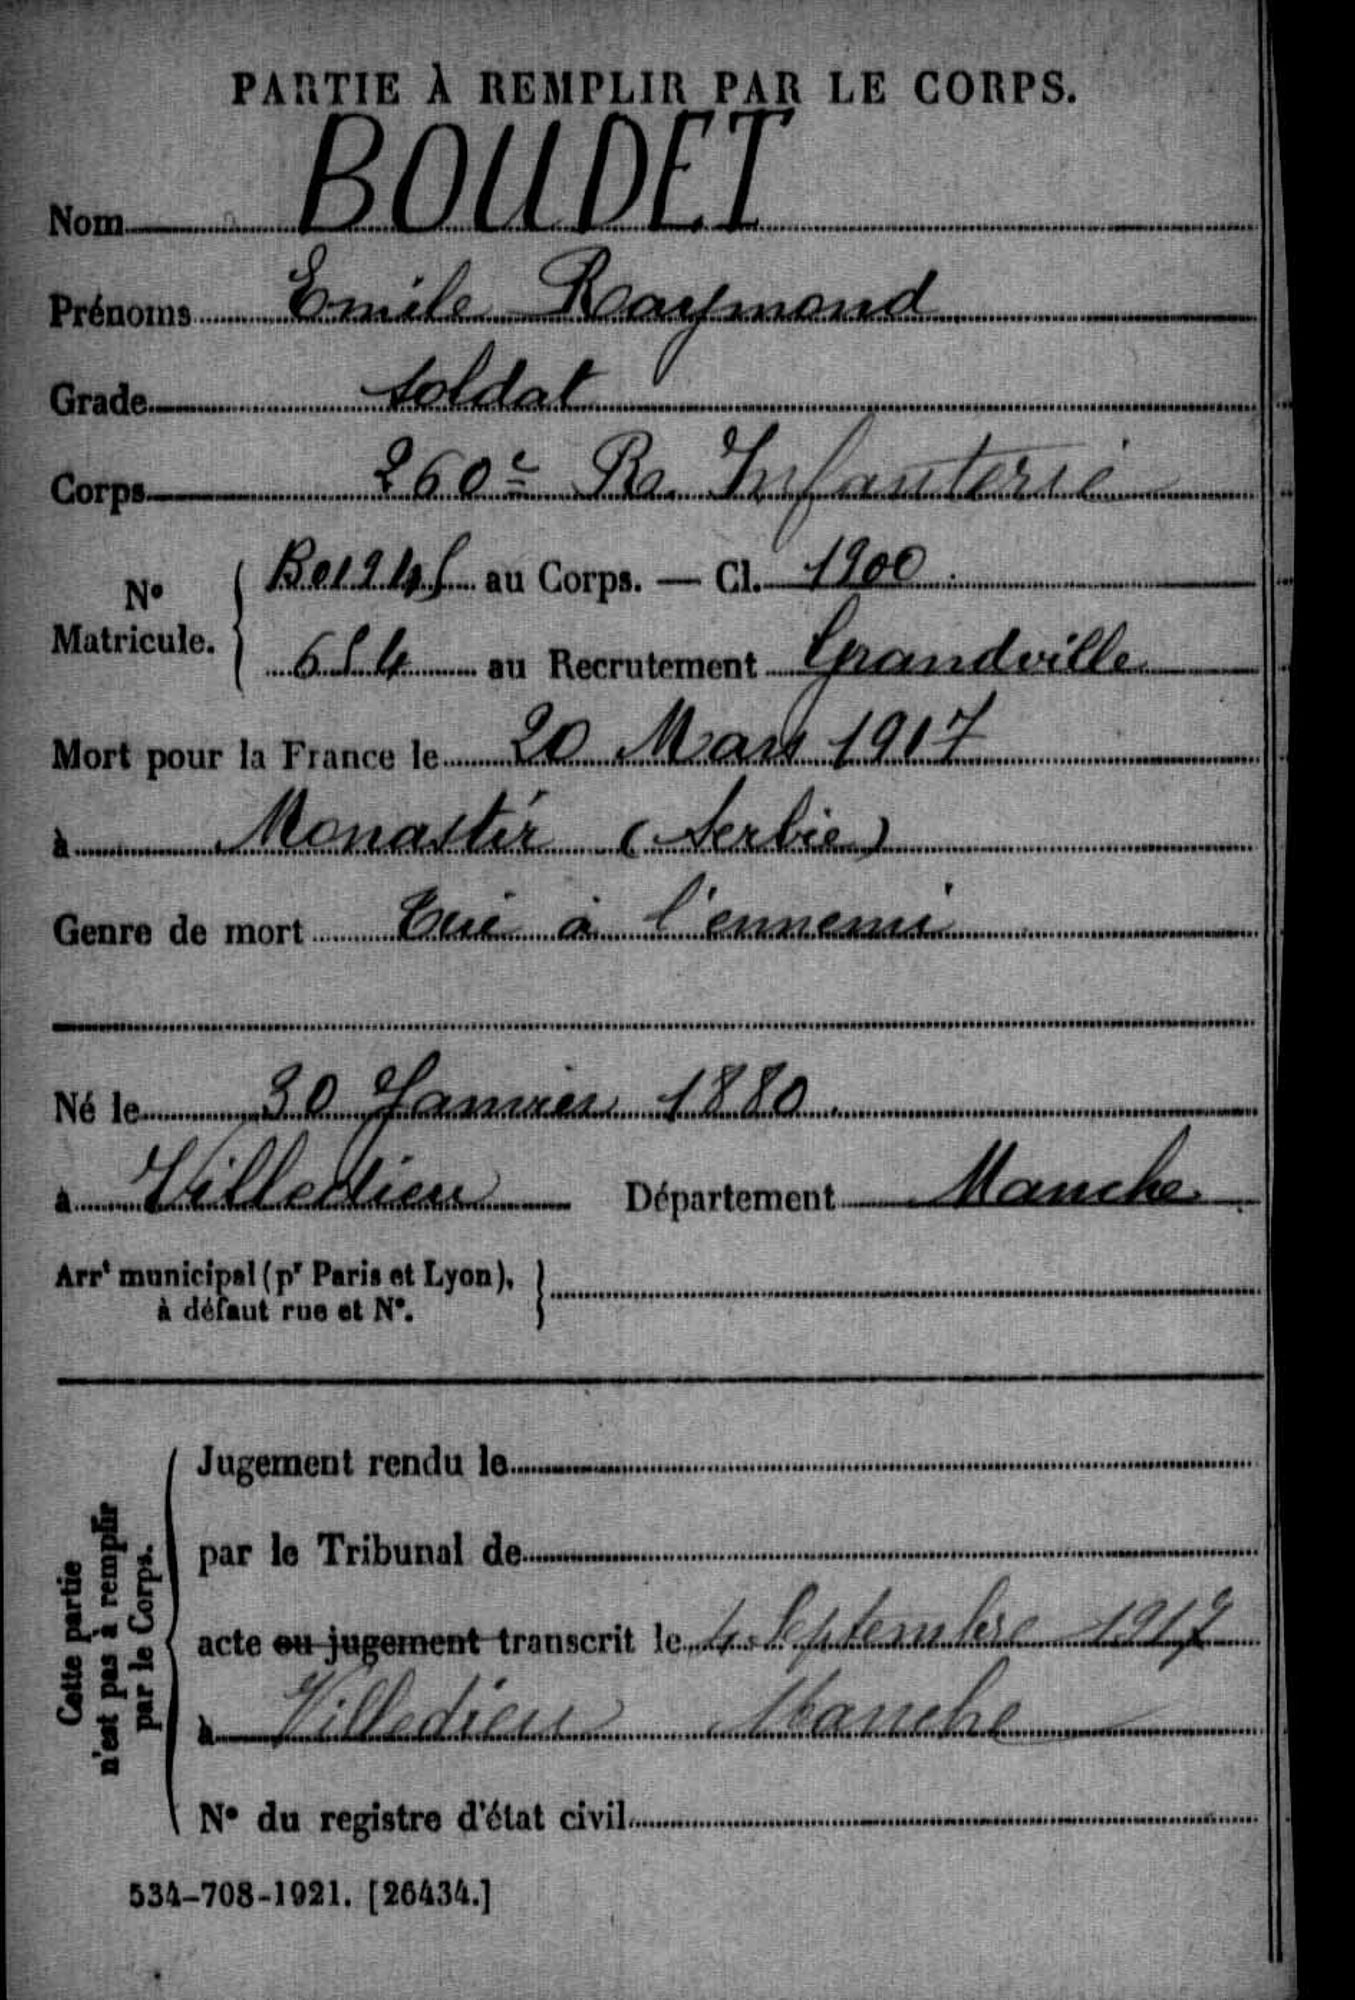 PARTIE À REMPLIR PAR LE CORPS.
Nom BOUDET
Prénoms Emile Raymond
Grade soldat
Corps 260e R. Infanterie
N° Matricule. au Corps. — Cl. 1900
654 au Recrutement Grandville
Mort pour la France le 20 Mars 1917
à Monastir (Serbie)
Genre de mort Tué à l'ennemi
Né le 30 Janvier 1880
à Villedieu Département Manche
Arrt municipal (pr Paris et Lyon),
à défaut rue et N°.
Cette partie
n'est pas à remplir
par le Corps.
Jugement rendu le
par le Tribunal de
acte ou jugement transcrit le 4 Septembre 1917
à Villedieu Manche
N° du registre d'état civil
534-708-1921. [26434.]